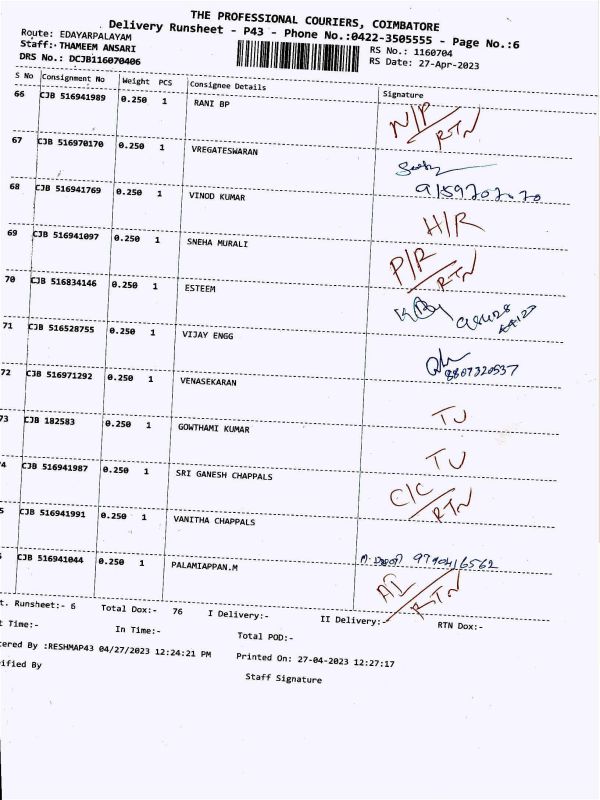 THE PROFESSIONAL COURIERS, COIMBATORE
Delivery Runsheet - P43 - Phone No.:0422-3505555 - Page No.:6
Route: EDAYARPALAYAM
Staff: THAMEEM ANSARI RS No.: 1160704
DRS No.: DCJB116070406 RS Date: 27-Apr-2023
S No Consignment No Weight PCS Consignee Details Signature
66 CJB 516941989 0.250 1 RANI BP N/P RTN
67 CJB 516970170 0.250 1 VREGATESWARAN
68 CJB 516941769 0.250 1 VINOD KUMAR H/R
69 CJB 516941097 0.250 1 SNEHA MURALI P/R RTN
70 CJB 516834146 0.250 1 ESTEEM
71 CJB 516528755 0.250 1 VIJAY ENGG 8807320537
72 CJB 516971292 0.250 1 VENASEKARAN TJ
73 CJB 182583 0.250 1 GOWTHAMI KUMAR TJ
4 CJB 516941987 0.250 1 SRI GANESH CHAPPALS C/C RTN
5 CJB 516941991 0.250 1 VANITHA CHAPPALS 9790416562
CJB 516941044 0.250 1 PALAMIAPPAN.M RTN
t. Runsheet:- 6 Total Dox:- 76 I Delivery:- II Delivery:- RTN Dox:-
t Time:- In Time:- Total POD:-
tered By :RESHMAP43 04/27/2023 12:24:21 PM Printed On: 27-04-2023 12:27:17
ified By Staff Signature